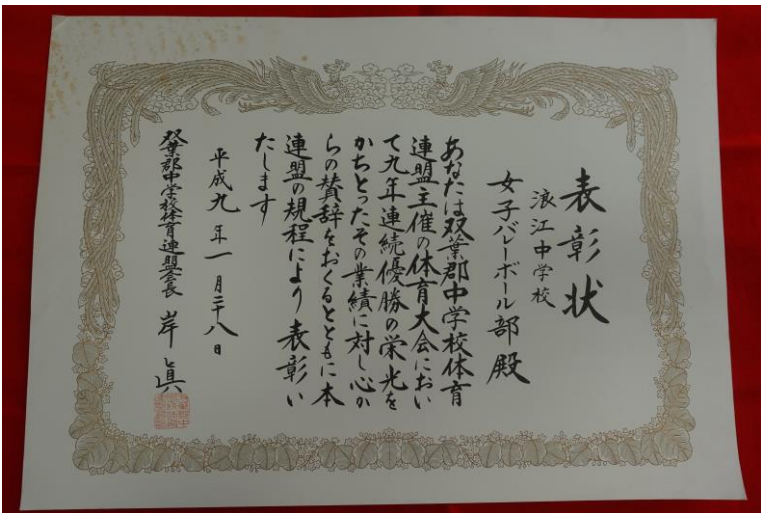 表彰状
浪江中学校
女子バレーボール部殿
あなたは双葉郡中学校体育
連盟主催の体育大会におい
て九年連続優勝の栄光を
かちとったその業績に対し心か
らの賛辞をおくるとともに本
連盟の規程により表彰い
たします
平成九年一月二十八日
双葉郡中学校体育連盟会長 岸 眞